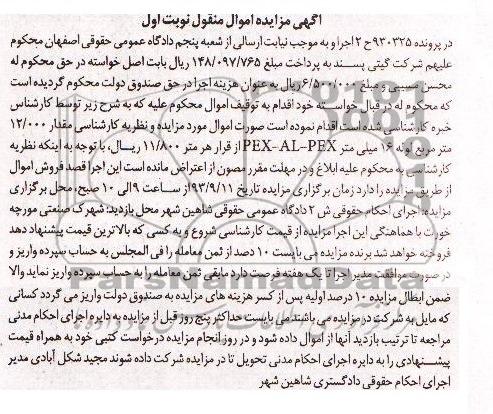 اگهی مزایده اموال منقول نوبت اول
در پرونده ۹۳۰۳۲۵ح ۲ اجرا و به موجب نیابت ارسالی از شعبه پنجم دادگاه عمومی حقوقی اصفهان محکوم
علیهم شرکت گیتی پسند به پرداخت مبلغ ۱۴۸/۰۹۷/۷۶۵ ریال بابت اصل خواسته در حق محکوم له
محسن مسیبی و مبلغ ۶/۵۰۰/۰۰۰ ریال به عنوان هزینه اجرا در حق صندوق دولت محکوم گردیده است
که محکوم له در قبال خواسته خود اقدام به توقیف اموال محکوم علیه که به شرح زیر توسط کارشناس
خبره کارشناسی شده است اقدام نموده است صورت اموال مورد مزایده و نظریه کارشناسی مقدار ۱۲/۰۰۰
متر مربع لوله ۱۶ میلی متر PEX-AL-PEX از قرار هر متر ۱۱/۸۰۰ ریال، با توجه به اینکه نظریه
کارشناسی به محکوم علیه ابلاغ و در مهلت مقرر مصون از اعتراض مانده است این اجرا قصد فروش اموال
از طریق مزایده را دارد زمان برگزاری مزایده تاریخ ۹۳/۹/۱۱ از ساعت ۹ الی ۱۰ صبح، محل برگزاری
مزایده: اجرای احکام حقوقی ش ۲ دادگاه عمومی حقوقی شاهین شهر محل بازدید: شهرک صنعتی مورچه
خورت با هماهنگی این اجرا مزایده از قیمت کارشناسی شروع و به کسی که بالاترین قیمت پیشنهاد دهد
فروخته خواهد شد برنده مزایده می بایست ۱۰ دصد از ثمن معامله را فی المجلس به حساب سپرده واریز و
در صورت موافقت مدیر اجرا تا یک هفته فرصت دارد مابقی ثمن معامله را به حساب سپرده واریز نماید والا
ضمن ابطال مزایده ۱۰ درصد اولیه پس از کسر هزینه های مزایده به صندوق دولت واریز می گردد کسانی
که مایل به شرکت در مزایده می باشند می بایست حداکثر پنج روز قبل از مزایده به دایره اجرای احکام مدنی
مراجعه تا ترتیب بازدید آنها از اموال داده شود و در روز انجام مزایده درخواست کتبی خود به همراه قیمت
پیشنهادی را به دایره اجرای احکام مدنی تحویل تا در مزایده شرکت داده شوند مجید شکل آبادی مدیر
اجرای احکام حقوقی دادگستری شاهین شهر
ParsNamadData